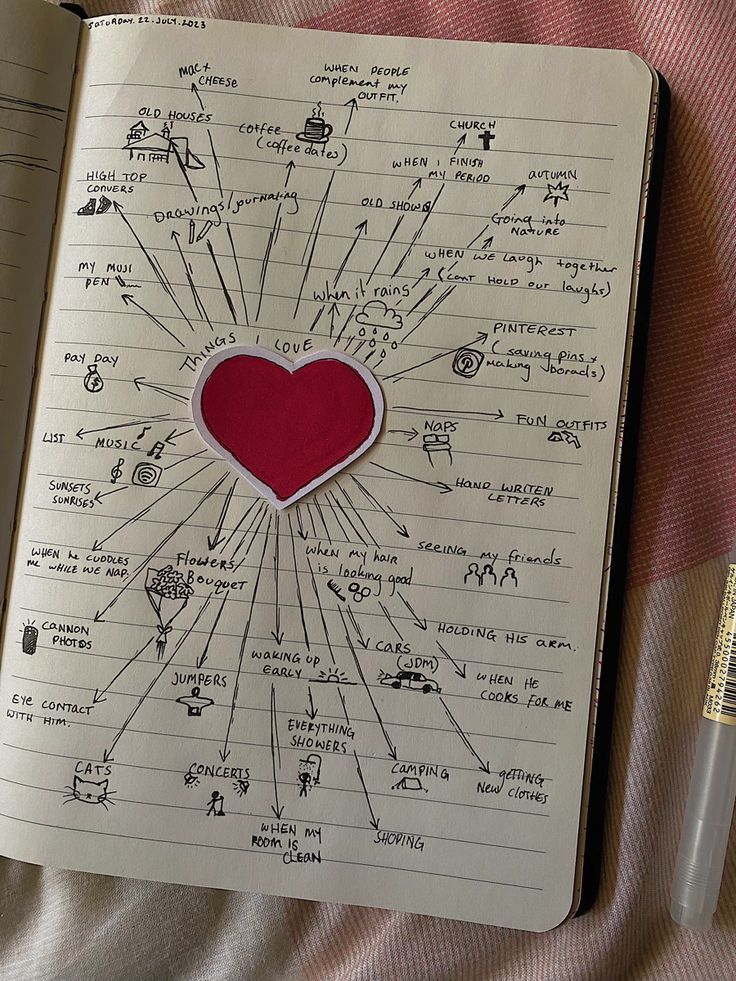 SATURDAY. 22. JULY. 2023
MAC +
CHEESE
WHEN PEOPLE
complement my
OUTFIT.
OLD HOUSES
COFFEE
(coffee dates)
CHURCH
WHEN I FINISH
MY PERIOD
AUTUMN
HIGH TOP
CONVERS
Drawings/journaling
OLD SHOWS
Going into
NATURE
WHEN WE LAUGH together
(CANT HOLD OUR LAUGHS)
MY MUJI
PEN
when it rains
THINGS I LOVE
PINTEREST
(saving pins +
making borads)
PAY DAY
FUN OUTFITS
NAPS
LIST
MUSIC
HAND WRITEN
LETTERS
SUNSETS
SUNRISES
WHEN HE CUDDLES
ME WHILE WE NAP.
Flowers
Bouquet
when my hair
is looking good
seeing my friends
CANNON
PHOTOS
HOLDING HIS ARM.
WAKING UP
EARLY
CARS
(JDM)
WHEN HE
COOKS FOR ME
JUMPERS
EYE CONTACT
WITH HIM.
EVERYTHING
SHOWERS
CATS
CONCERTS
CAMPING
getting
NEW CLOTHES
WHEN MY
ROOM IS
CLEAN
SHOPING
4550002794262